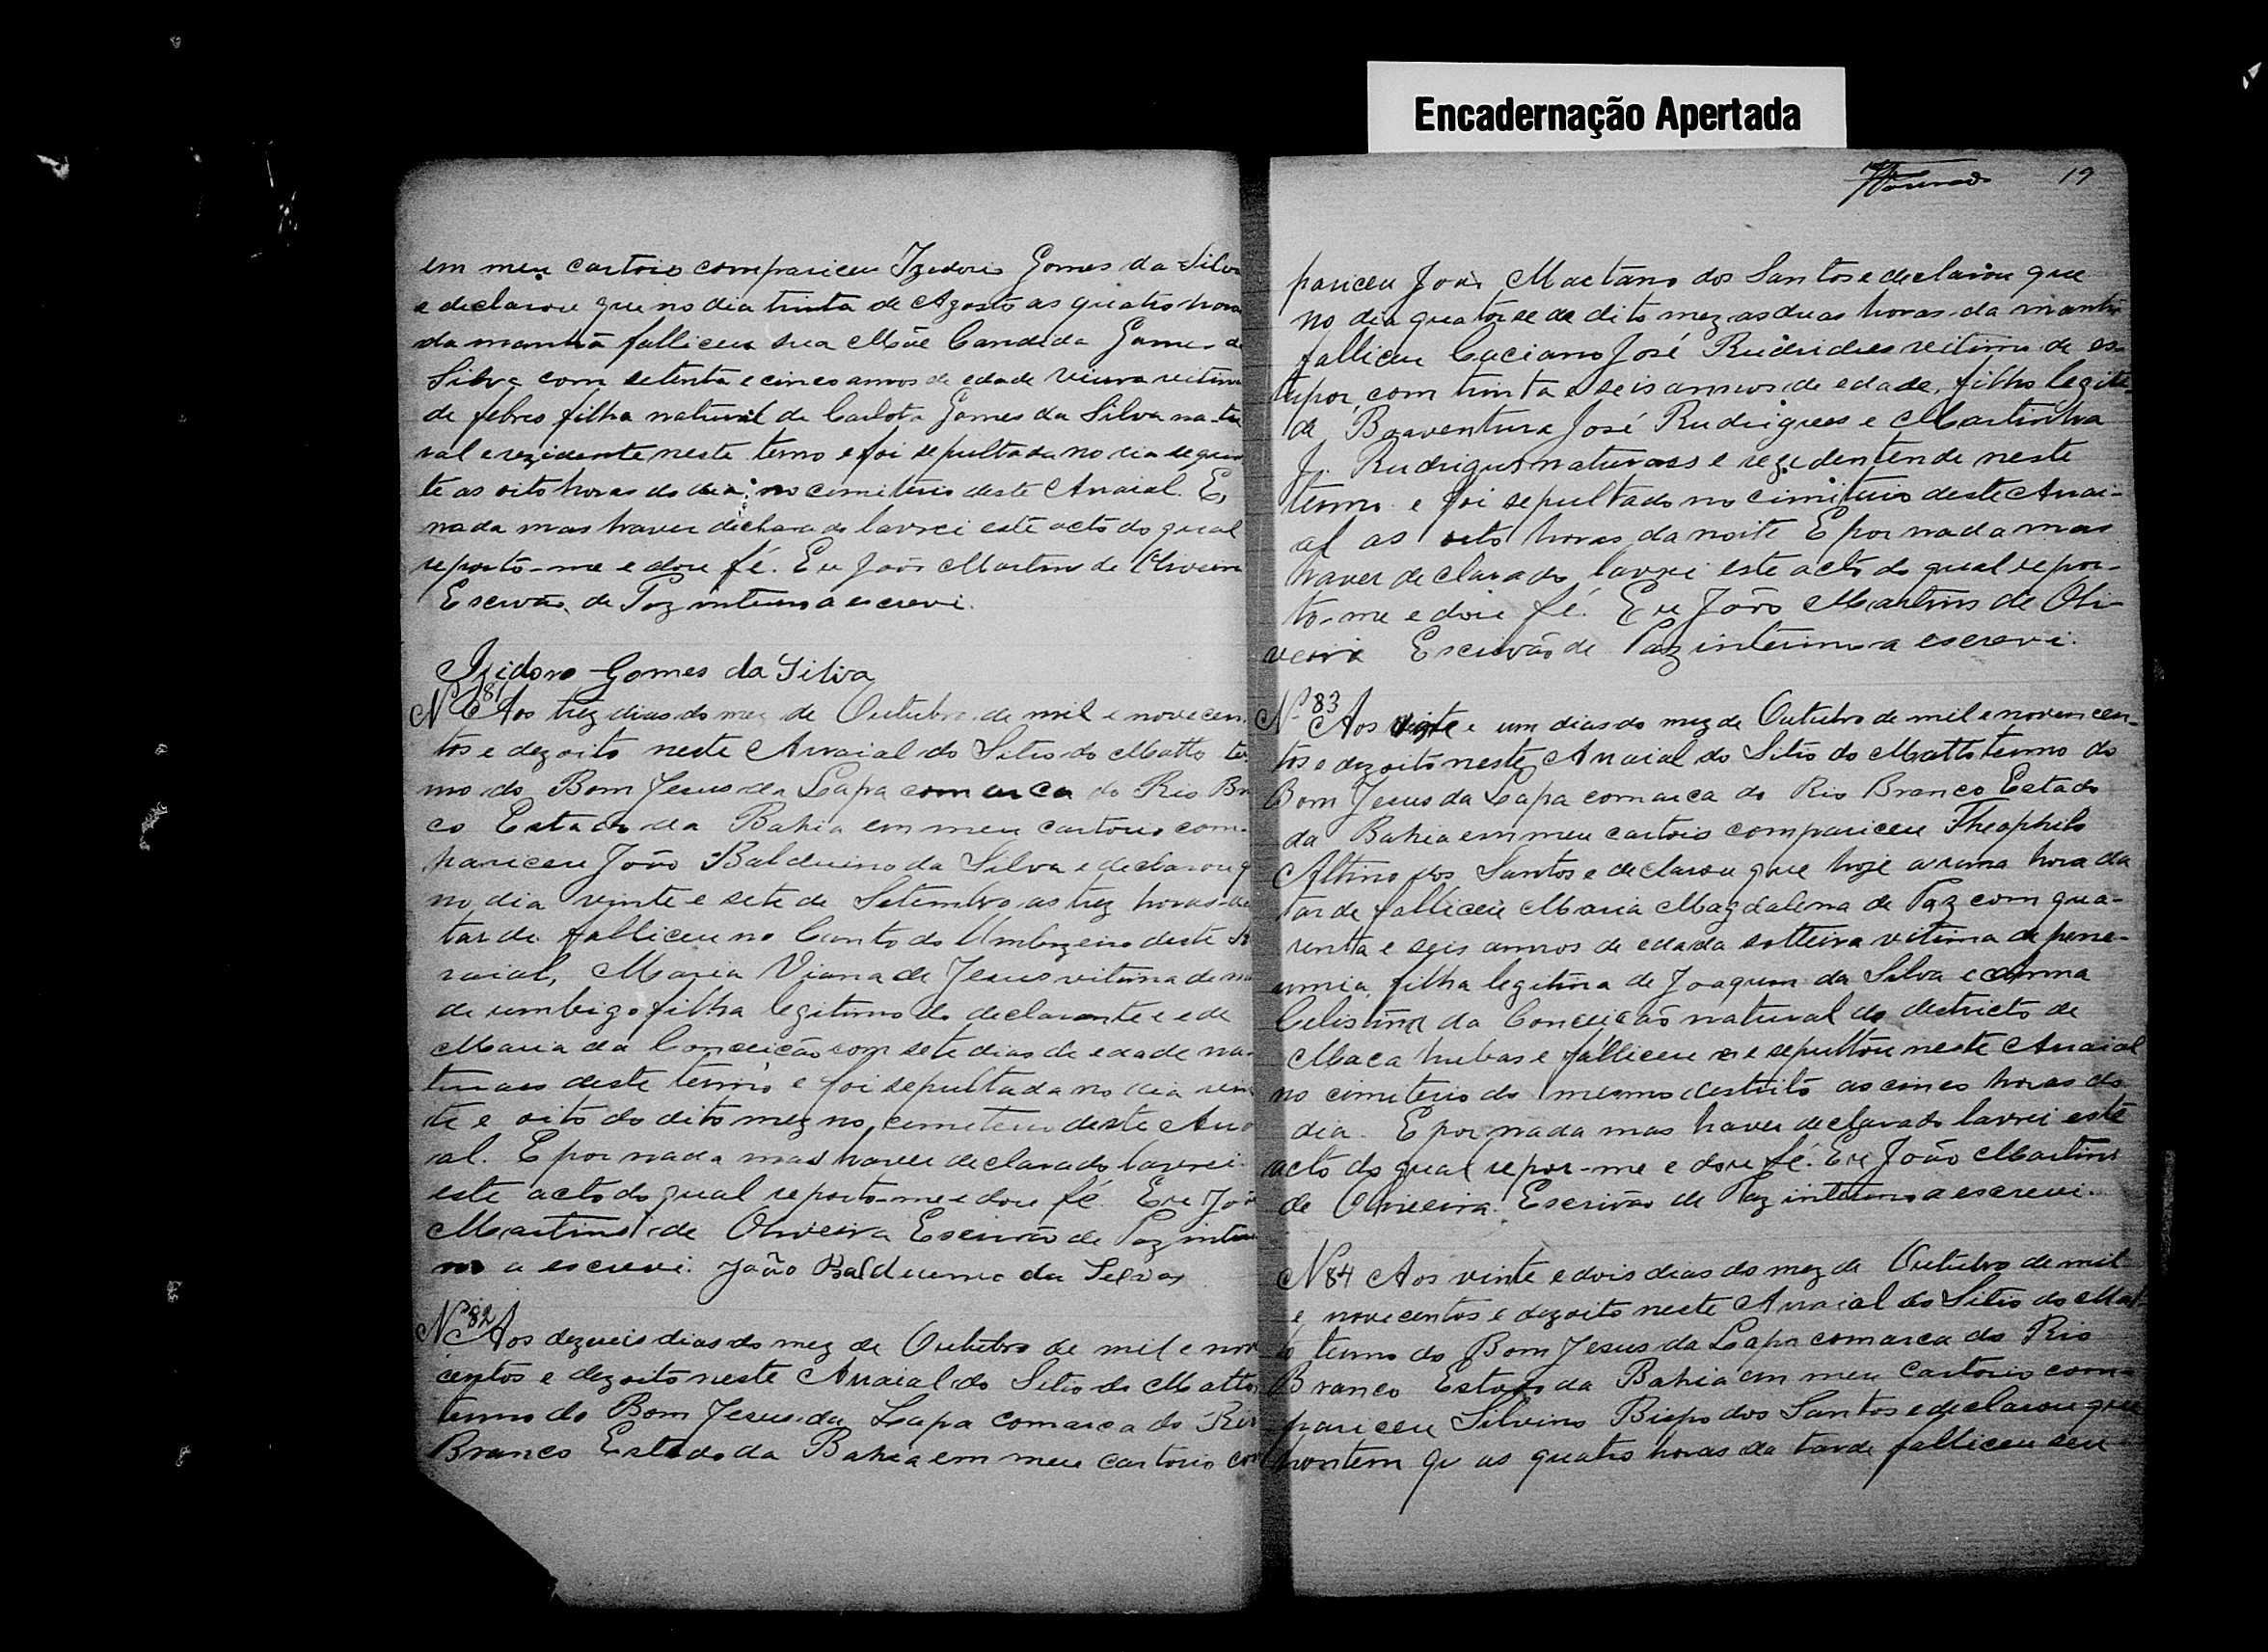 Encadernação Apertada
em meu cartorio compariceu Izidorio Gomes da Silva
e declarou que no dia trinta de Agosto as quatro horas
da manhã falliceu sua Mãe Candida Gomes da
Silva com setenta e cinco annos de edade viuva vitima
de febres filha natural de Carlota Gomes da Silva natu
ral e rezidente neste termo e foi sepultada no dia seguin
te as oito horas do dia no cimiterio deste Arraial. E,
nada mas haver declarado lavrei este acto do qual
reporto-me e dou fé. Eu João Martins de Oliveira
Escrvão de Paz interino a escrevi.
Izidoro Gomes da Silva
Nº 81 Aos trez dias do mez de Outubro de mil e novecen
tos e dezoito neste Arraial do Sitio do Matto ter
mo do Bom Jesus da Lapa comarca do Rio Bran
co Estado da Bahia em meu cartorio com-
pariceu João Balduino da Silva e declarou q
no dia vinte e sete de Setembro as trez horas da
tarde falliceu no Canto do Umbuzeiro deste Ar
raial, Maria Viana de Jesus vitima de
de umbigo filha legitima do declarante e de
Maria da Conceição com sete dias de edade na
turaes deste termo e foi sepultada no dia vin
te e oito do dito mez no cemiterio deste Arra
ial. E por nada mas haver declarado lavrei
este acto do qual reporto-me e dou fé. Eu João
Martins de Oliveira Escrivão de Paz interi
no a escrevi. João Balduino da Silva
Nº 82 Aos dezueis dias do mez de Outubro de mil e nove
centos e dezoito neste Arraial do Sitio do Matto
termo do Bom Jesus da Lapa comarca do Rio
Branco Estado da Bahia em meu cartorio com
19
pariceu João Maetano dos Santos e declarou que
no dia quatorse de dito mez as duas horas da manhã
falliceu Caciano José Rudrides vitima de es-
tupor, com trinta e seis annos de edade, filho legiti
de Boaventura José Rudrigues e Martinha
J. Rudrigues naturaes e rezidentende neste
termo e foi sepultado no cimiterio deste Arrai-
al as oito horas da noite E por nada mas
haver declarado lavrei este acto do qual repor-
to-me e dou fé. Eu João Martins de Oli-
veira Escrivão de Paz interino a escrevi.
Nº 83 Aos vinte e um dias do mez de Outubro de mil e noven cen-
tos e dezoito neste Arraial do Sitio do Matto termo do
Bom Jesus da Lapa comarca do Rio Branco Estado
da Bahia em meu cartorio compariceu Theophilo
Altino dos Santos e declarou que hoje a uma hora da
tarde falliceu Maria Magdalena de Paz com qua-
renta e seis annos de edada solteira vitima de pine-
umia, filha legitima de Joaquim da Silva e Anna
Celistina da Conceição natural do destricto de
Maca hubas e falliceu e se sepultou neste Arraial
no cimiterio do mesmo destrito as cinco horas do
dia. E por nada mas haver declarado lavrei este
acto do qual repor-me e dou fé. Eu João Martins
de Oliveira Escrivão de Paz interino a escrevi.
N 84 Aos vinte e dois dias do mez de Outubro de mil
e novecentos e dezoito neste Arraial do Sitio do Mat-
to termo do Bom Jesus da Lapa comarca do Rio
Branco Estado da Bahia em meu cartorio com-
pariceu Silvino Bispo dos Santos e declarou que
hontem qu as quatro horas da tarde falliceu seu